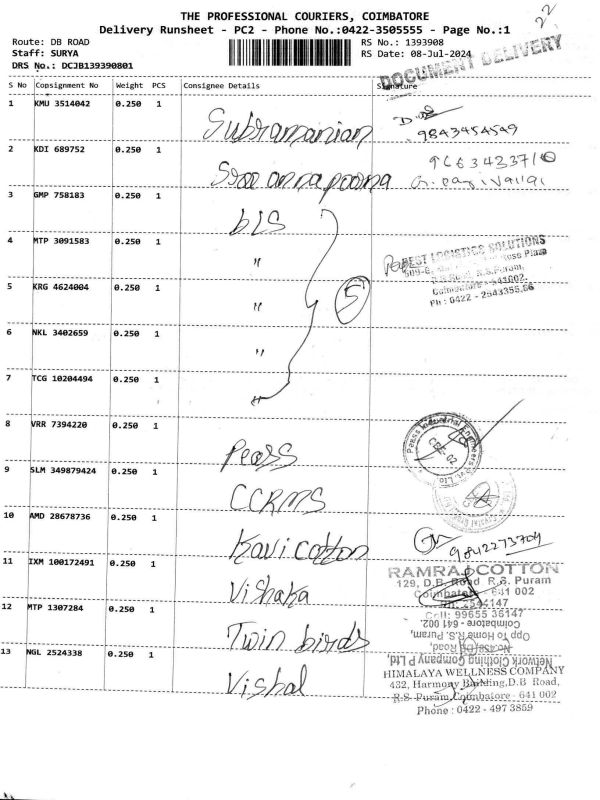 THE PROFESSIONAL COURIERS, COIMBATORE
Delivery Runsheet - PC2 - Phone No.:0422-3505555 - Page No.:1
22
Route: DB ROAD
RS No.: 1393908
Staff: SURYA
RS Date: 08-Jul-2024
DRS No.: DCJB139390801
DOCUMENT DELIVERY
S No Consignment No Weight PCS Consignee Details Signature
1 KMU 3514042 0.250 1 Subramanian
9843454549
2 KDI 689752 0.250 1 Sree annapoorna
3 GMP 758183 0.250 1 bLS
4 MTP 3091583 0.250 1 "
BEST LOGISTICS SOLUTIONS
Plaza
R.S.Puram,
Coimbatore - 641002.
Ph : 0422 - 2543355,66
5 KRG 4624004 0.250 1 " 5
6 NKL 3402659 0.250 1 "
7 TCG 10204494 0.250 1 "
8 VRR 7394220 0.250 1 Peass
Peass Industrial Engineers Pvt. Ltd.
CBE-02
9 SLM 349879424 0.250 1 CCRMS
10 AMD 28678736 0.250 1 Kavi cotton
9842273709
11 IXM 100172491 0.250 1 Vishaka
RAMRAJ COTTON
129, D.B. Road R.S. Puram
Coimbatore 641 002
2544147
Cell: 99655 36147
12 MTP 1307284 0.250 1 Twin birds
Network Clothing Company P Ltd,
Road,
Opp to Home R.S. Puram,
Coimbatore - 641 002.
13 NGL 2524338 0.250 1 Vishal
HIMALAYA WELLNESS COMPANY
432, Harmony Building, D.B Road,
R.S. Puram, Coimbatore - 641 002
Phone : 0422 - 497 3859